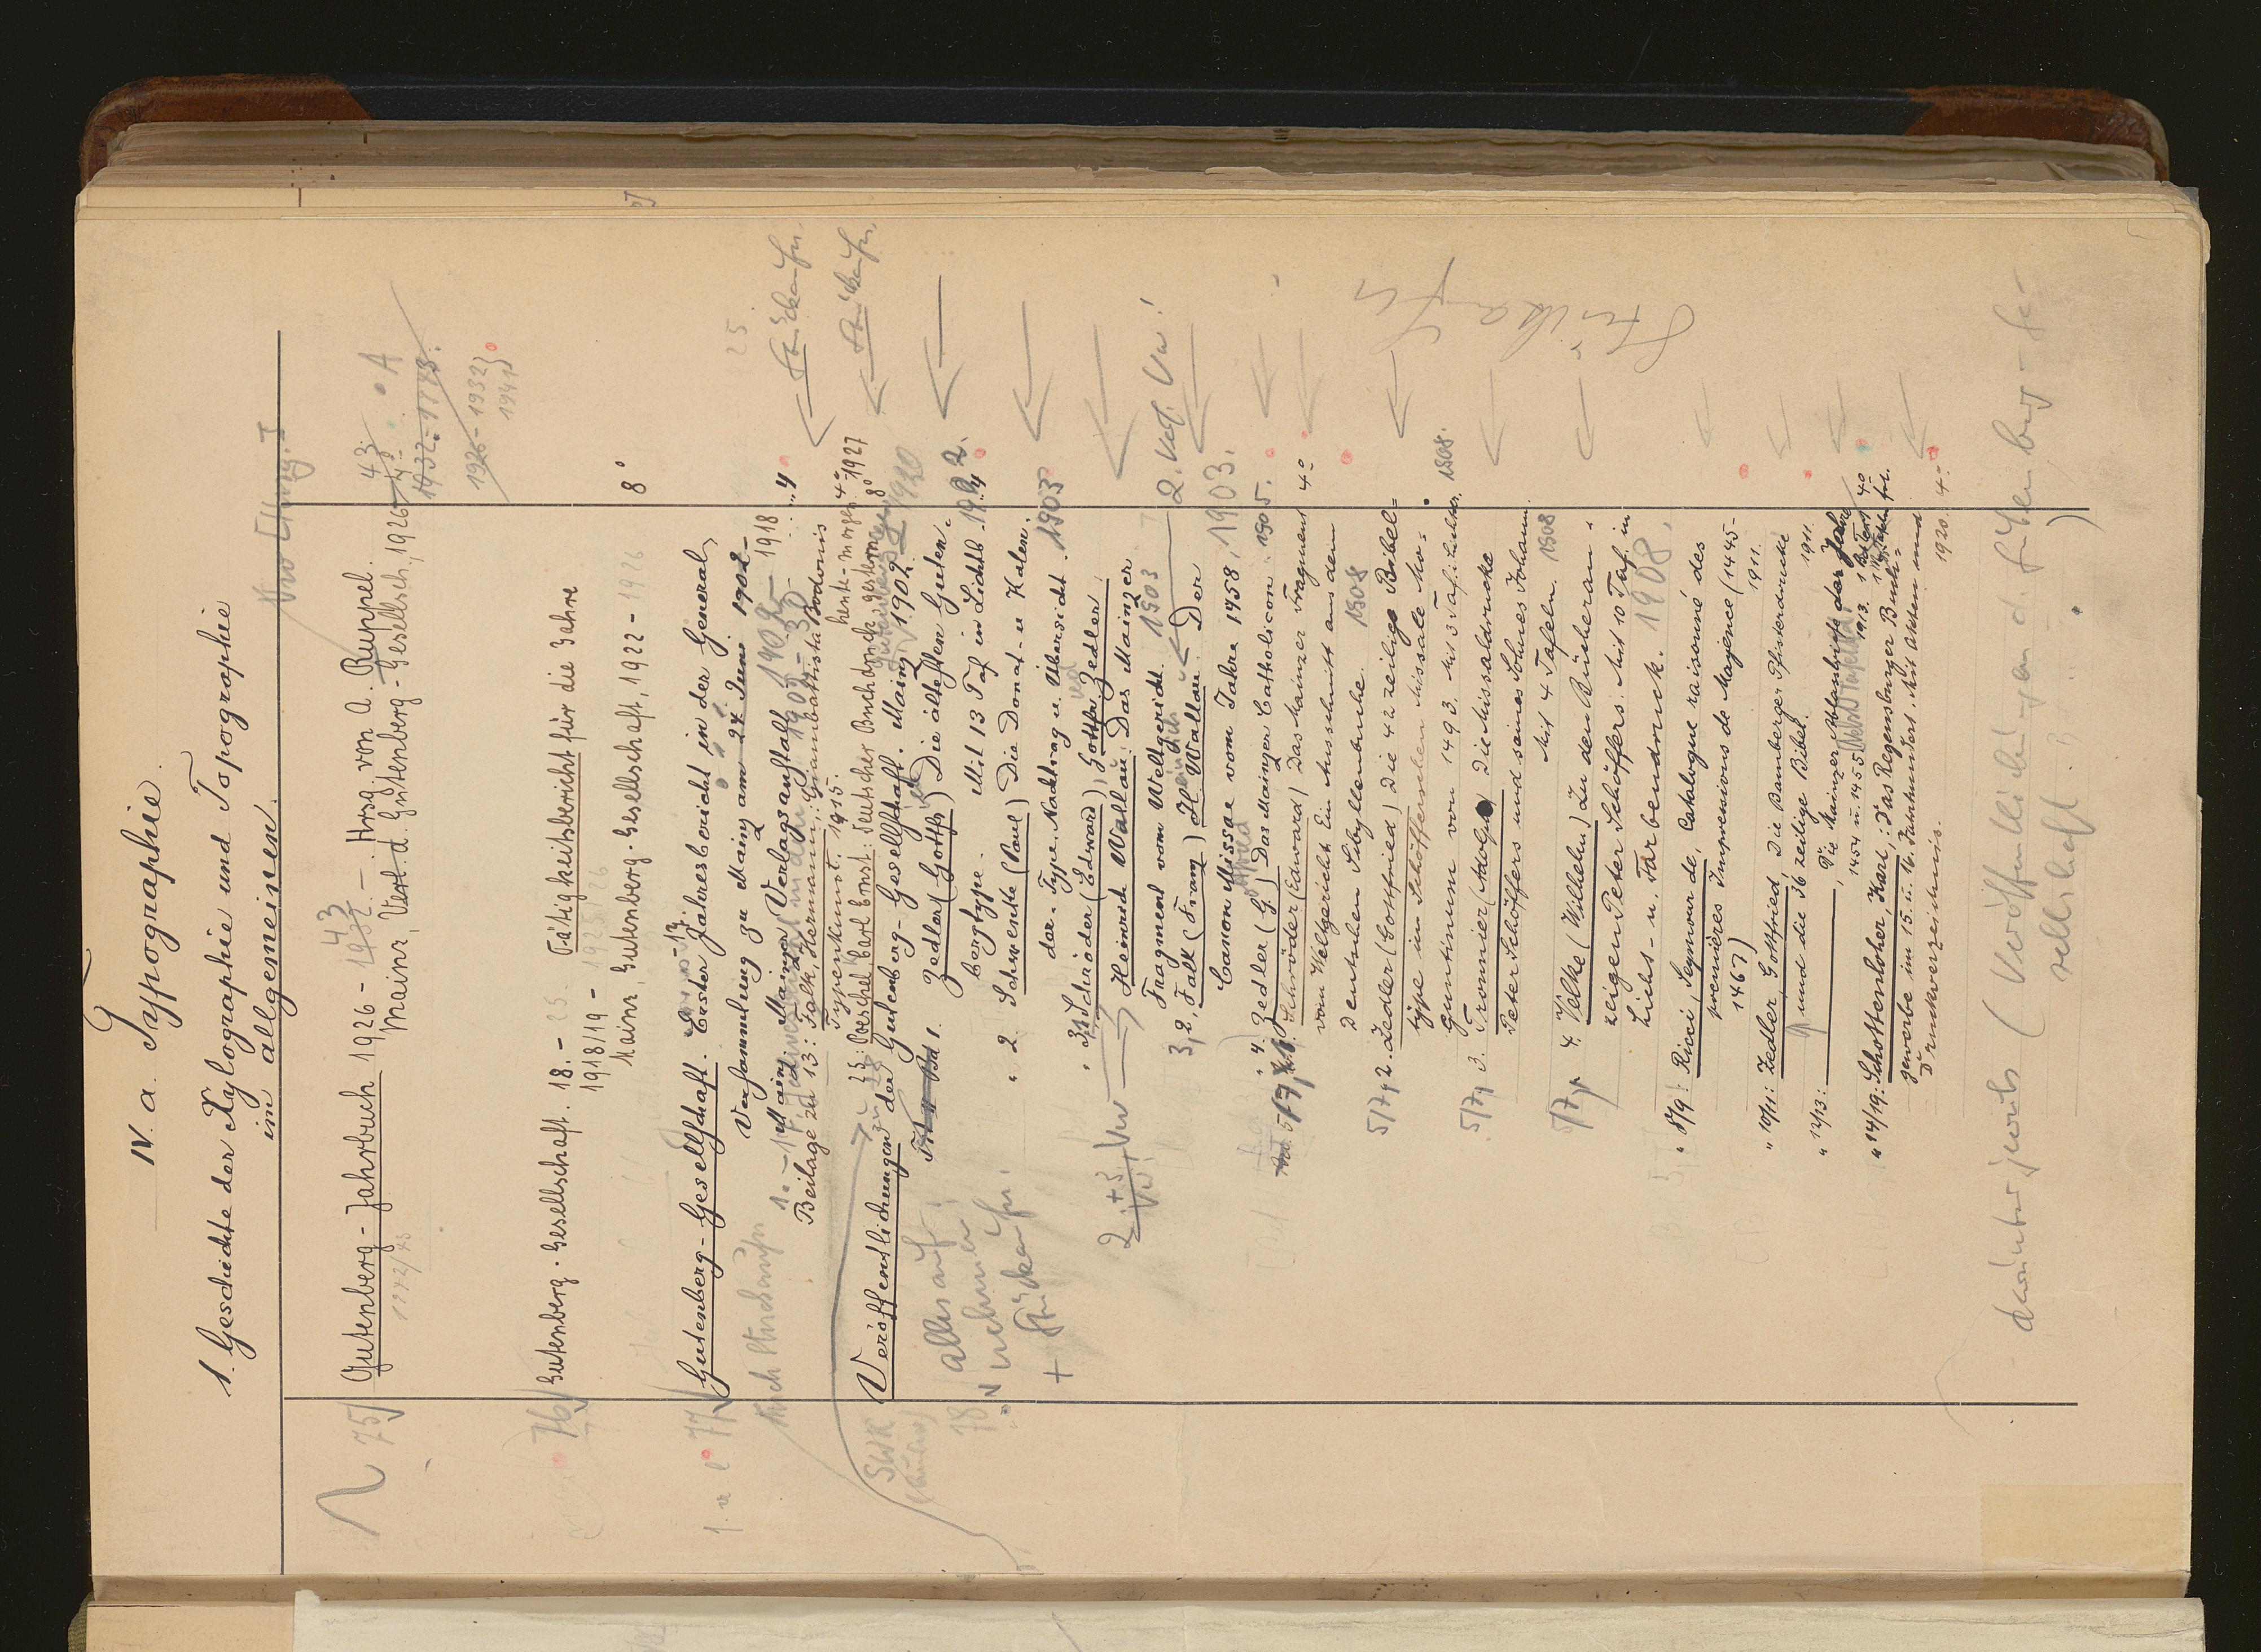 IV. a. Typographie.
1. Geschichte der Xylographie und Topographie
im allgemeinen.
75
Gutenberg-Jahrbuch 1926 - 1932 43 — Hrsg. von A. Ruppel.
Mainz, Verl. d. Gutenberg-Gesellsch., 1926-43
1942/43
1932-1943.
1926-1932
1941
A
76
Gutenberg-Gesellschaft. 18.- 25. Tätigkeitsbericht für die Jahre
1918/19 - 1925/26
Mainz, Gutenberg-Gesellschaft, 1922 - 1926
8°
77
Gutenberg-Gesellschaft. Erster Jahresbericht in der General-
Versammlung zu Mainz am 27. Juni 1902 -
Mainz Mainzer Verlagsanstalt 1902 - 1918
4°
Beilage zu 13: Falk, Hermann: Giambattista Bodonis
Typenkunst. 1915.
zu 25: Poeschel, Carl Ernst: Deutscher Buchdruck gestern,
heute - morgen 1927
8°
78
Veröffentlichungen der Gutenberg-Gesellschaft. Mainz, 1902. 1920
1. Zedler (Gottfr.) Die älteste Guten-
bergtype. Mit 13 Taf. in Lichtb. 1902.
4°
" 2. Schwenke (Paul) Die Donat- u. Kalen-
der-Type. Nachtrag u. Übersicht. 1903
" 3,1 Schröder (Edward) Gottfr. Zedler,
Heinrich Wallau: Das Mainzer
Fragment vom Weltgericht. 1903
3,2, Falk (Franz) H. Wallau: Der
Canon Missae vom Jahre 1458, 1903.
" 4. Zedler (G.) Das Mainzer Catholicon. 1905.
5/7,1. Schröder (Edward) Das Mainzer Fragment 4°
vom Weltgericht. Ein Ausschnitt aus dem
Deutschen Sibyllenbuche. 1908
5/7, 2. Zedler (Gottfried) Die 42 zeilige Bibel-
type im Schöfferschen Missale Mo-
guntinum von 1493. Mit 3 Taf. i. Lichtdr. 1908.
5/7, 3. Tronnier (Adolph) Die Missaldrucke
Peter Schöffers und seines Sohnes Johann
Mit 4 Tafeln. 1908
5/7, 4. Velke (Wilhelm) Zu den Bücheran-
zeigen Peter Schöffers. Mit 10 Taf. in
Licht- u. Farbendruck. 1908.
" 8/9: Ricci, Seymour de, Catalogue raisonné des
premières Impressions de Mayence (1445-
1467) 1911.
" 10/11: Zedler, Gottfried, Die Bamberger Pfisterdrucke
und die 36 zeilige Bibel. 1911.
" 12/13: —— , Die Mainzer Ablassbriefe der Jahre
1454 u. 1455 1913.
" 14/19: Schottenloher, Karl,: Das Regensburger Buch-
gewerbe im 15. u. 16. Jahrhundert. Mit Akten und
Druckverzeichnis. 1920. 4°
alles auf
nehmen!
+ Stücke
SWK
2. Verf. Vw!
darunter jeweils (Veröffentlichungen d. Gutenberg-Ge-
sellschaft. 3 . . . )